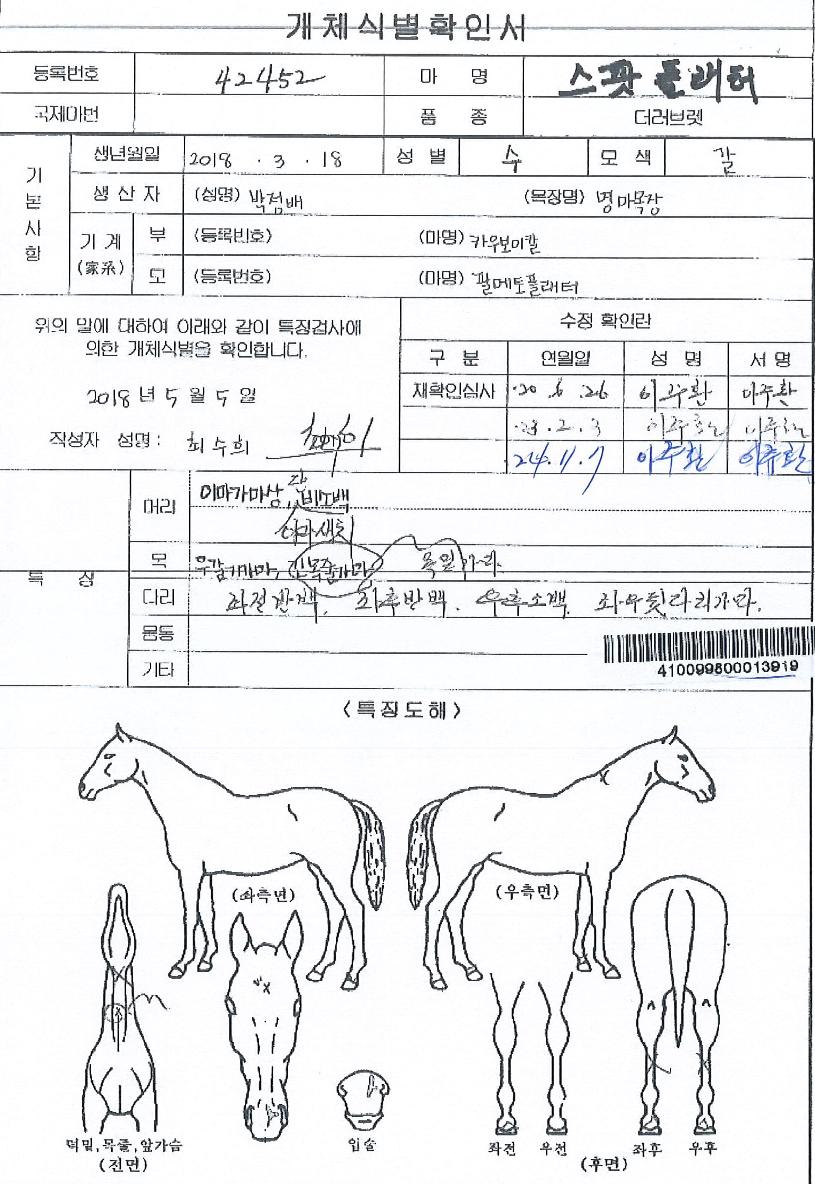 개체식별확인서
등록번호 42452 마 명 스팟플래터
국제마번 품 종 더러브렛
기본사항 생년월일 2018 . 3 . 18 성 별 수 모 색 갈
생 산 자 (성명) 박점배 (목장명) 명마목장
기 계 (家系) 부 (등록번호) (마명) 카우보이칼
모 (등록번호) (마명) 팔메토플래터
위의 말에 대하여 아래와 같이 특징검사에
의한 개체식별을 확인합니다.
2018 년 5 월 5 일
작성자 성명 : 최수희
수정 확인란
구 분 연월일 성 명 서 명
재확인심사 '20. 6. 26 이주환 이주환
'23. 2. 3 이주환 이주환
'24. 11. 7 이주환 이주환
특 징
머리 이마가마상, 비소백
이마새치
목 우감기가마, 목줄가마 목일가마.
다리 좌전반백, 좌후반백. 우후소백, 좌우뒷다리가마.
몸통
기타
410099800013919
<특징도해>
(좌측면) (우측면)
턱밑,목줄,앞가슴
(전면)
입술
좌전 우전 좌후 우후
(후면)